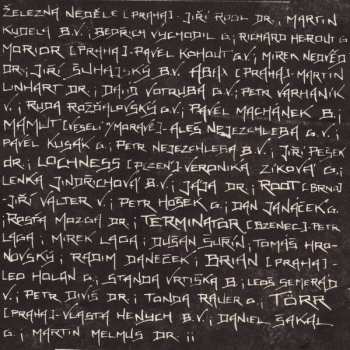 ŽELEZNÁ NEDĚLE [PRAHA]- JIŘÍ RODL DR.¡ MARTIN
KUDELA B.V.¡ BEDŘICH VYCHODIL G.¡ RICHARD HEROUT G.
MORIOR [PRAHA]- PAVEL KOHOUT G.V.¡ MIREK NEDVĚD
DR.¡ JIŘÍ ŠUHAJSKÝ B.V. ABIX [PRAHA]- MARTIN
LINHART DR.¡ DAVID VOTRUBA G.V.¡ PETR VARHANÍK
V.¡ RUDA ROŽMILOVSKÝ G.V.¡ PAVEL MACHÁNEK B.¡
MAMUT [VESELÍ N/MORAVĚ]- ALEŠ NEJEZCHLEBA G.V.¡
PAVEL KUSÁK G.¡ PETR NEJEZCHLEBA B.V.¡ JIŘÍ PEŠEK
DR.¡ LOCHNESS [PLZEŇ] VERONIKA ZIKOVÁ G.¡
LENKA JINDŘICHOVÁ B.V.¡ JAJA DR.¡ ROOT [BRNO]
-JIŘÍ VALTER V.¡ PETR HOŠEK G.¡ DAN JANÁČEK G.
ROSTA MOZGA DR.¡ TERMINATOR [BZENEC]- PETR
LAGA¡ MIREK LAGA¡ DUŠAN ŠURÍN¡ TOMÁŠ HRO-
NOVSKÝ¡ RADIM DANEČEK¡ BRIAN [PRAHA]-
LEO HOLAN G.¡ STANDA VRTIŠKA B.¡ LEOŠ SEMERÁD
V.¡ PETR DIVIŠ DR.¡ TONDA RAUER G.¡ TÖRR
[PRAHA]- VLASTA HENYCH B.V.¡ DANIEL ŠAKAL
G.¡ MARTIN MELMUS DR.¡¡